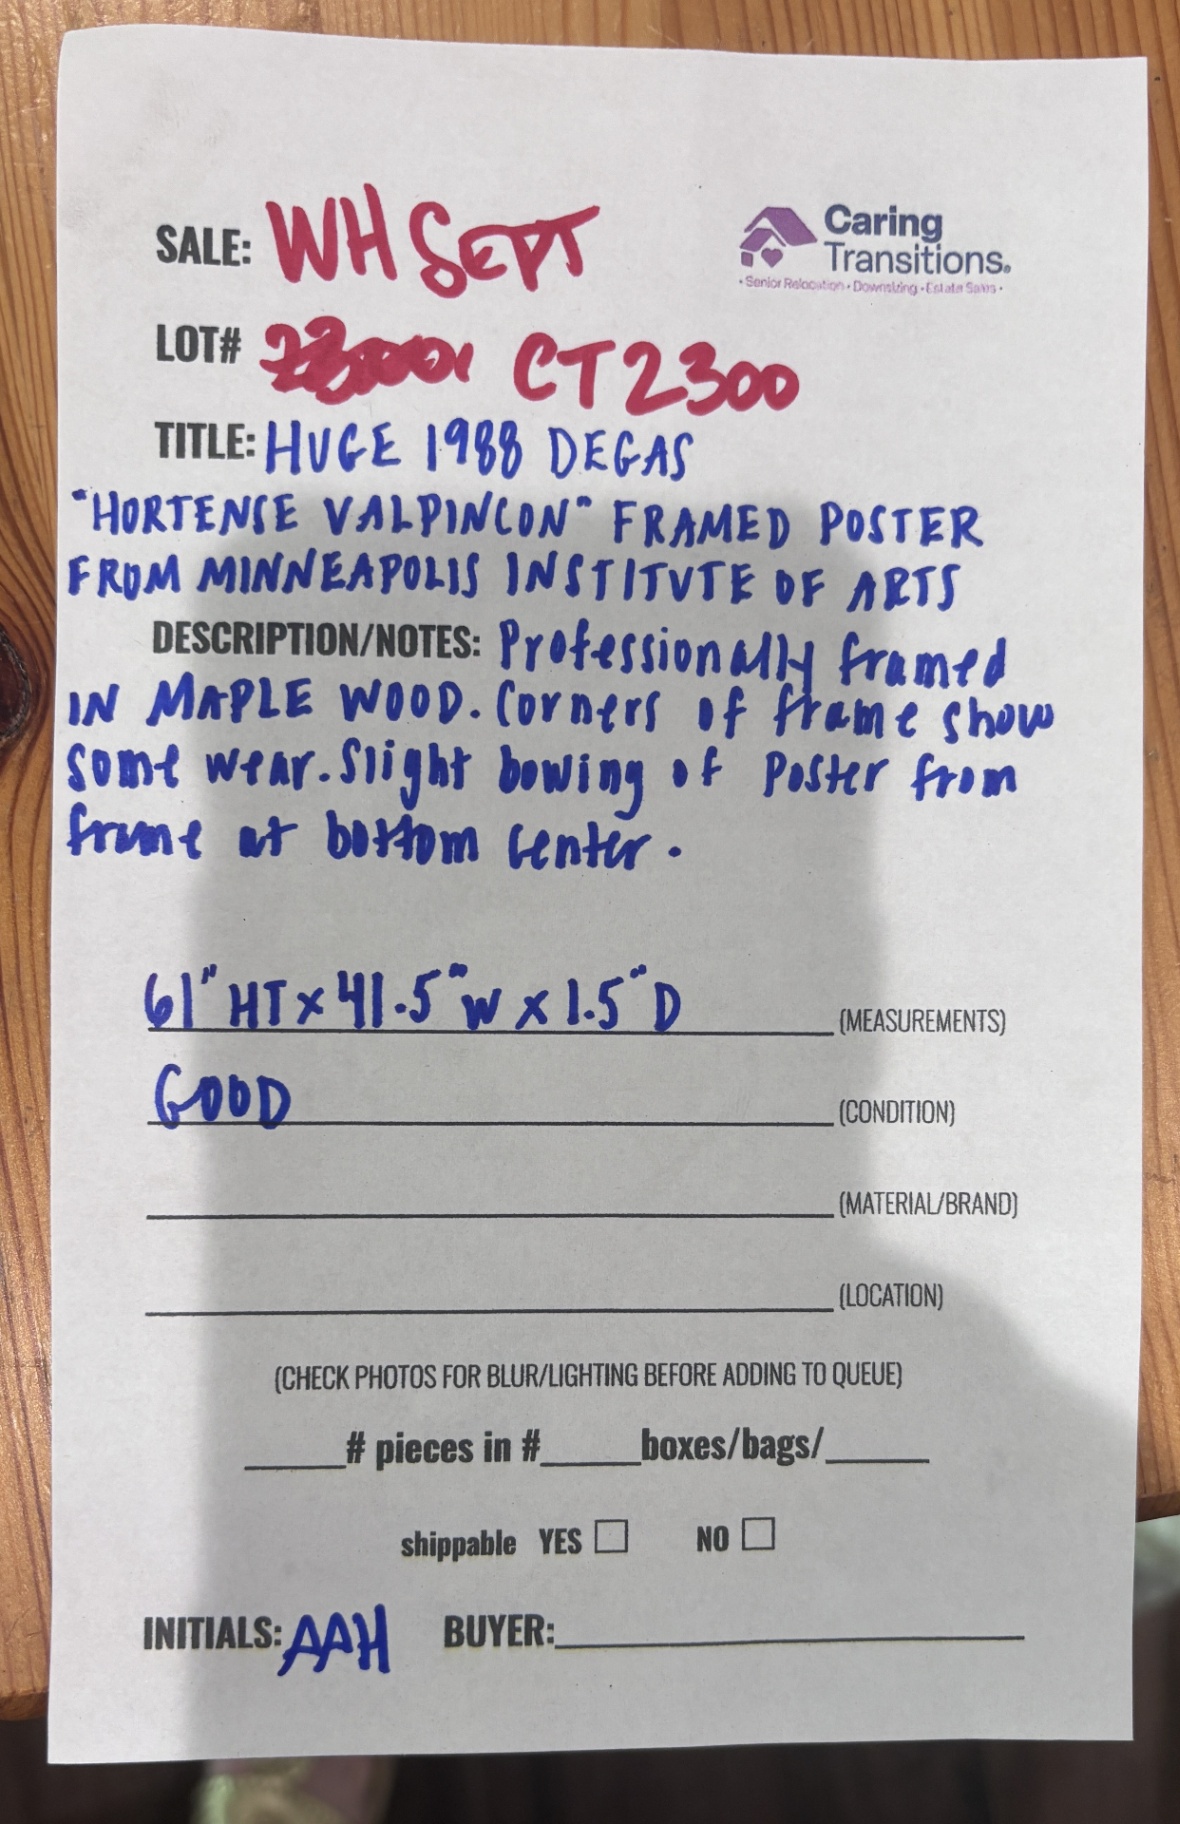 SALE: WH SEPT
Caring
Transitions®
• Senior Relocation • Downsizing • Estate Sales •
LOT# CT2300
TITLE: HUGE 1988 DEGAS
"HORTENSE VALPINCON" FRAMED POSTER
FROM MINNEAPOLIS INSTITUTE OF ARTS
DESCRIPTION/NOTES: Professionally framed
IN MAPLE WOOD. Corners of frame show
some wear. Slight bowing of Poster from
frame at bottom center.
61" HT x 41.5" W x 1.5" D (MEASUREMENTS)
GOOD (CONDITION)
(MATERIAL/BRAND)
(LOCATION)
(CHECK PHOTOS FOR BLUR/LIGHTING BEFORE ADDING TO QUEUE)
# pieces in # boxes/bags/
shippable YES NO
INITIALS: AAH BUYER: